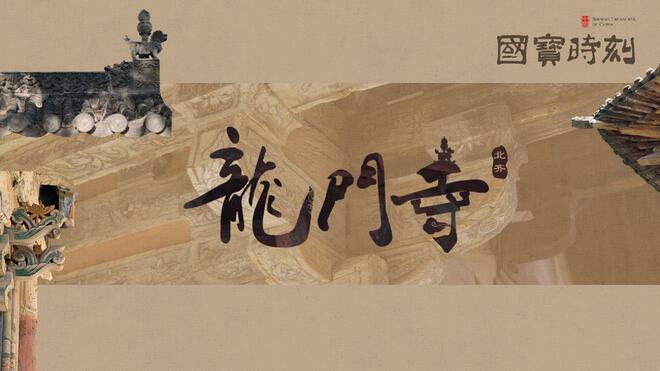 HIDDEN TREASURES
OF CHINA
國寶時刻
龍門寺
北齐